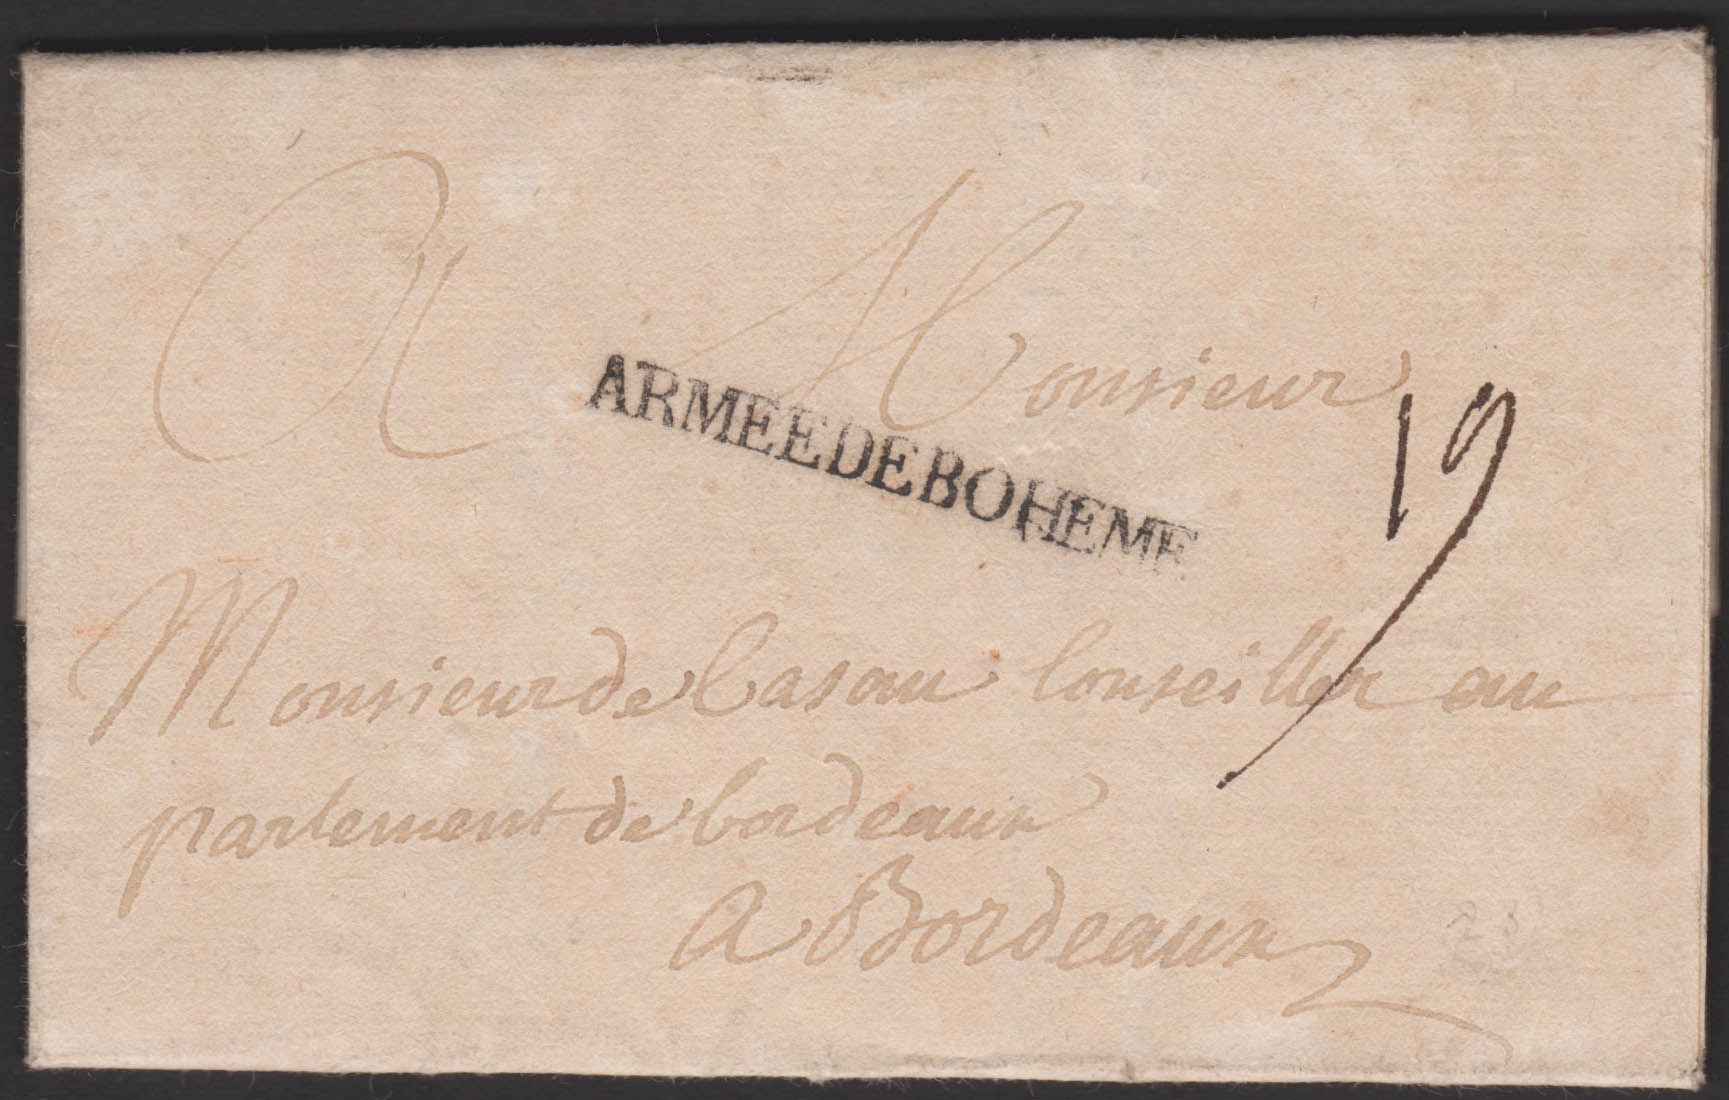 A Monsieur
ARMEE DE BOHEME
19
Monsieur de Casau Conseiller au
parlement de bordeaux
a Bordeaux